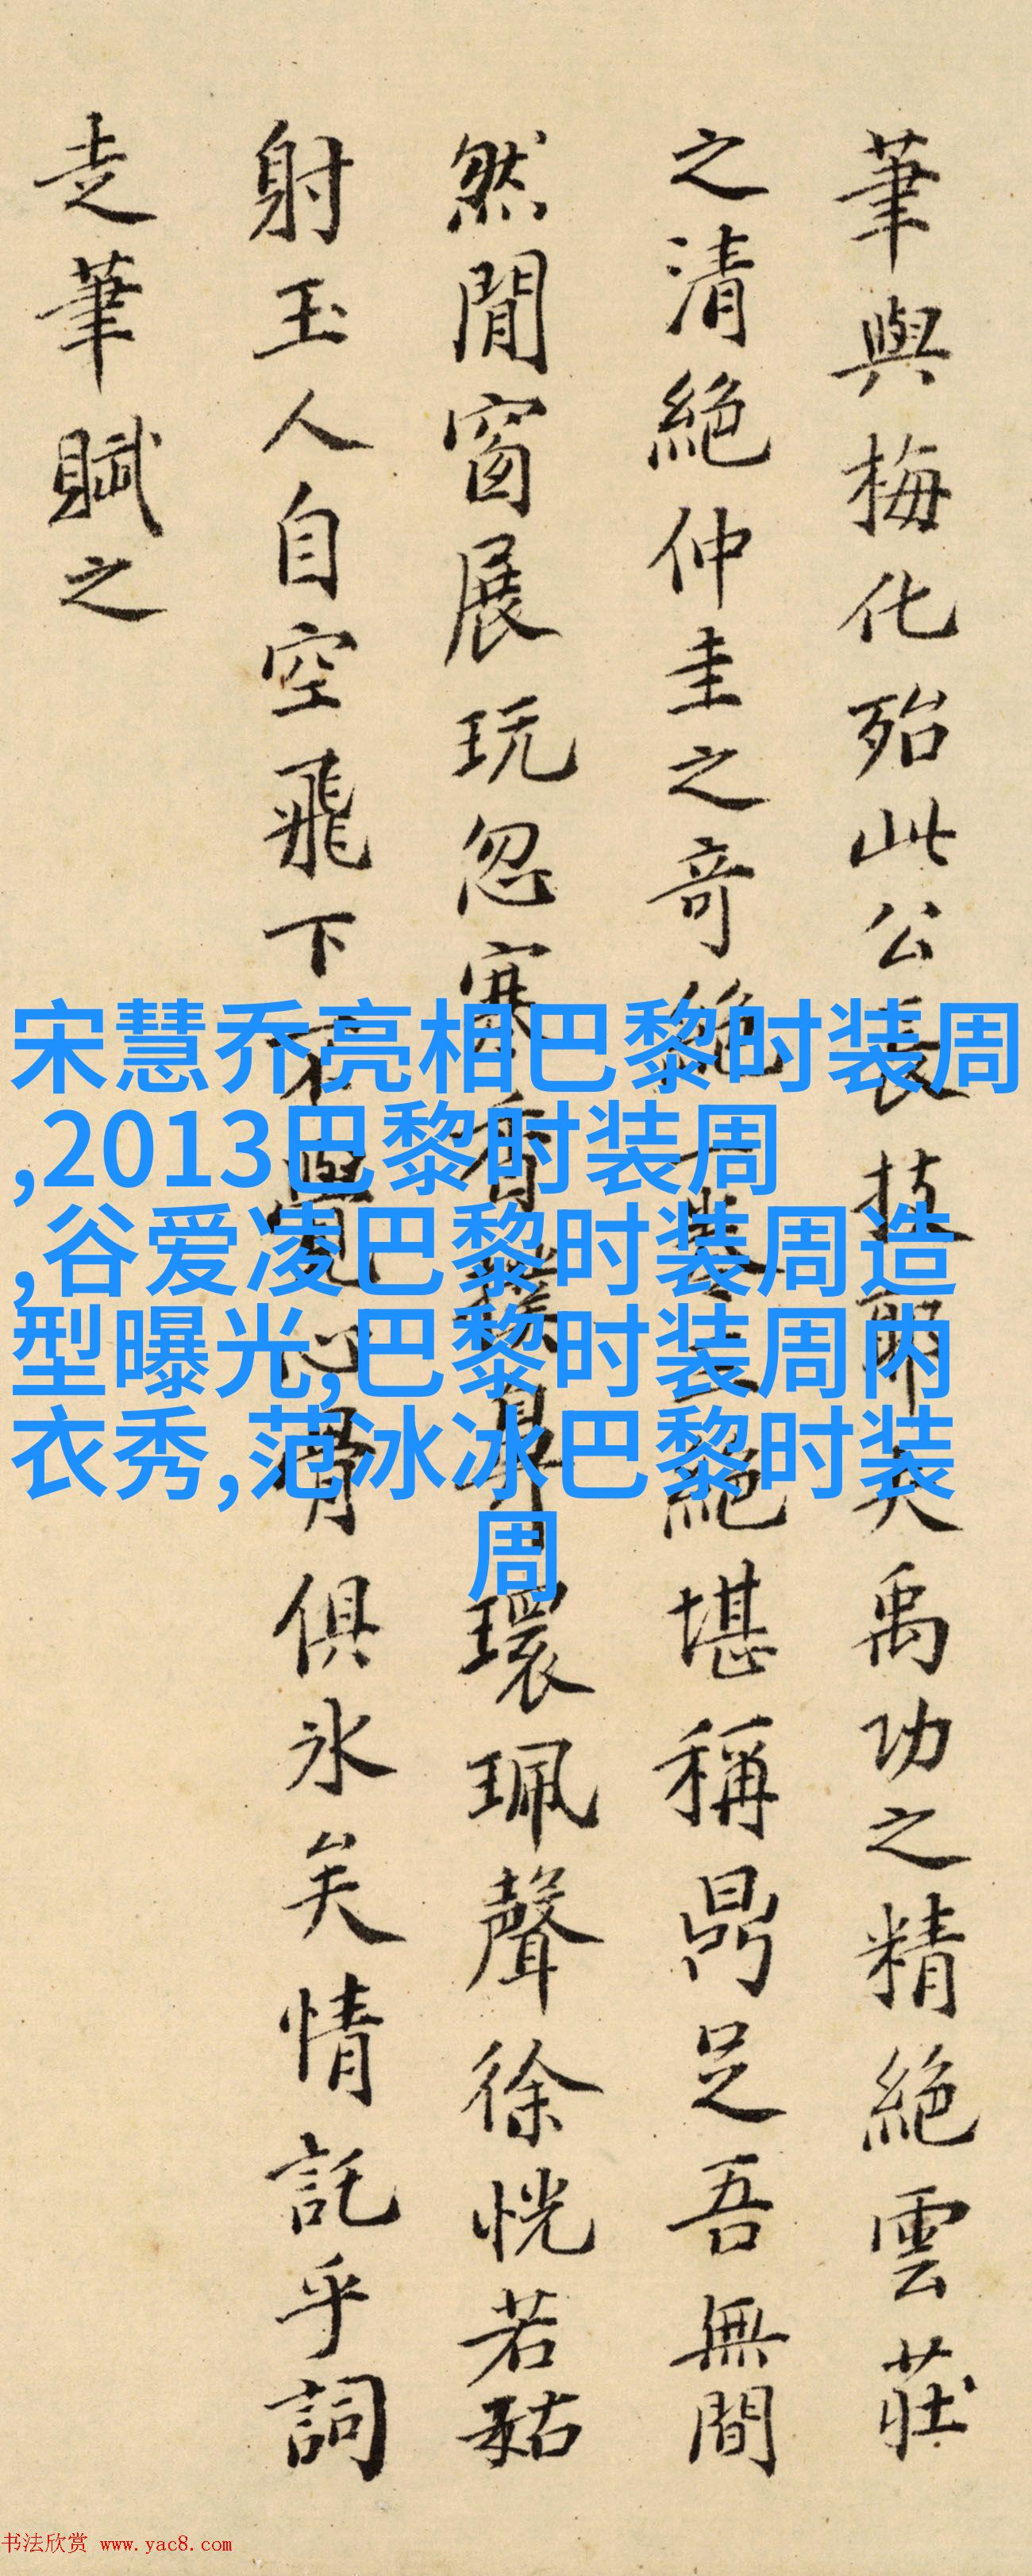 筆與梅化殆此公長技耶夫禹功之精絕雲莊
之清絕仲圭之奇絕世三絕堪稱鼎足吾無間
然閒窗展玩忽寒香襲鼻環珮聲徐恍若藐姑
射玉人自空飛下不覺心骨俱冰矣情託乎詞
走筆賦之
宋慧乔亮相巴黎时装周
,2013巴黎时装周
,谷爱凌巴黎时装周造
型曝光,巴黎时装周内
衣秀,范冰冰巴黎时装
周
书法欣赏 www.yac8.com